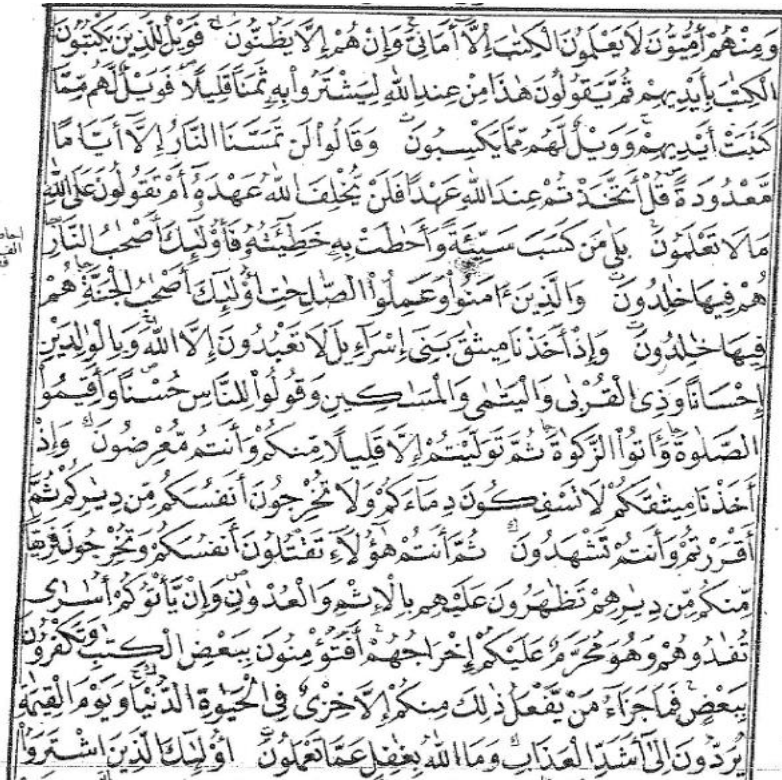 وَمِنْهُمْ أُمِّيُّونَ لَا يَعْلَمُونَ الْكِتَٰبَ إِلَّا أَمَانِيَّ وَإِنْ هُمْ إِلَّا يَظُنُّونَ فَوَيْلٌ لِّلَّذِينَ يَكْتُبُونَ
الْكِتَٰبَ بِأَيْدِيهِمْ ثُمَّ يَقُولُونَ هَٰذَا مِنْ عِندِ اللَّهِ لِيَشْتَرُوا۟ بِهِ ثَمَنًا قَلِيلًا فَوَيْلٌ لَّهُم مِّمَّا
كَتَبَتْ أَيْدِيهِمْ وَوَيْلٌ لَّهُم مِّمَّا يَكْسِبُونَ وَقَالُوا۟ لَن تَمَسَّنَا النَّارُ إِلَّا أَيَّامًا
مَّعْدُودَةً قُلْ أَتَّخَذْتُمْ عِندَ اللَّهِ عَهْدًا فَلَن يُخْلِفَ اللَّهُ عَهْدَهُ أَمْ تَقُولُونَ عَلَى اللَّهِ
مَا لَا تَعْلَمُونَ بَلَىٰ مَن كَسَبَ سَيِّئَةً وَأَحَٰطَتْ بِهِ خَطِيٓئَتُهُ فَأُو۟لَٰٓئِكَ أَصْحَٰبُ النَّارِ
هُمْ فِيهَا خَٰلِدُونَ وَالَّذِينَ ءَامَنُوا۟ وَعَمِلُوا۟ الصَّٰلِحَٰتِ أُو۟لَٰٓئِكَ أَصْحَٰبُ الْجَنَّةِ هُمْ
فِيهَا خَٰلِدُونَ وَإِذْ أَخَذْنَا مِيثَٰقَ بَنِىٓ إِسْرَآءِيلَ لَا تَعْبُدُونَ إِلَّا اللَّهَ وَبِالْوَٰلِدَيْنِ
إِحْسَانًا وَذِى الْقُرْبَىٰ وَالْيَتَٰمَىٰ وَالْمَسَٰكِينِ وَقُولُوا۟ لِلنَّاسِ حُسْنًا وَأَقِيمُوا۟
الصَّلَوٰةَ وَءَاتُوا۟ الزَّكَوٰةَ ثُمَّ تَوَلَّيْتُمْ إِلَّا قَلِيلًا مِّنكُمْ وَأَنتُم مُّعْرِضُونَ وَإِذْ
أَخَذْنَا مِيثَٰقَكُمْ لَا تَسْفِكُونَ دِمَآءَكُمْ وَلَا تُخْرِجُونَ أَنفُسَكُم مِّن دِيَٰرِكُمْ ثُمَّ
أَقْرَرْتُمْ وَأَنتُمْ تَشْهَدُونَ ثُمَّ أَنتُمْ هَٰٓؤُلَآءِ تَقْتُلُونَ أَنفُسَكُمْ وَتُخْرِجُونَ فَرِيقًا
مِّنكُم مِّن دِيَٰرِهِمْ تَظَّهَرُونَ عَلَيْهِم بِالْإِثْمِ وَالْعُدْوَٰنِ وَإِن يَأْتُوكُمْ أُسَٰرَىٰ
تَفْدُوهُمْ وَهُوَ مُحَرَّمٌ عَلَيْكُمْ إِخْرَاجُهُمْ أَفَتُؤْمِنُونَ بِبَعْضِ الْكِتَٰبِ وَتَكْفُرُونَ
بِبَعْضٍ فَمَا جَزَآءُ مَن يَفْعَلُ ذَٰلِكَ مِنكُمْ إِلَّا خِزْىٌ فِى الْحَيَوٰةِ الدُّنْيَا وَيَوْمَ الْقِيَٰمَةِ
يُرَدُّونَ إِلَىٰٓ أَشَدِّ الْعَذَابِ وَمَا اللَّهُ بِغَٰفِلٍ عَمَّا تَعْمَلُونَ أُو۟لَٰٓئِكَ الَّذِينَ اشْتَرَوُا۟